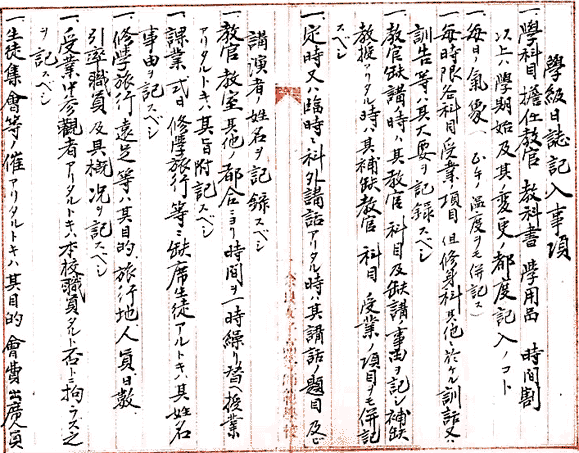 學級日誌記入事項
一、學科目 擔任教官 教科書 學用品 時間割
以上ハ學期始及其ノ變更ノ都度記入ノコト
一、每日ノ氣象（正午ノ溫度ヲモ併記ス）
一、每時限各科目受業ノ項目 但修身科其他ニ於ケル訓話又ハ
訓告等ハ其大要ヲ記錄スベシ
一、教官缺講時ハ其教官 科目及缺講事由ヲ記シ補缺
教授アリタル時ハ其補缺教官 科目 受業ノ項目ヲモ併記
スベシ
一、定時又ハ臨時ニ科外講話アリタル時ハ其講話ノ題目及ビ
講演者ノ姓名ヲ記錄スベシ
一、教官教室其他ノ都合ニヨリ時間ヲ一時繰リ替ヘ授業
アリタルトキハ其旨附記スベシ
一、課業 式日 修學旅行等ニ缺席生徒アルトキハ其姓名
事由ヲ記スベシ
一、修學旅行遠足等ハ其目的 旅行地 人員 日數
引率職員及其概況ヲ記スベシ
一、受業中參觀者アリタルトキハ本校職員タルト否トニ拘ラズ之
ヲ記スベシ
一、生徒集會等ノ催アリタルトキハ其目的 會費 出席人員